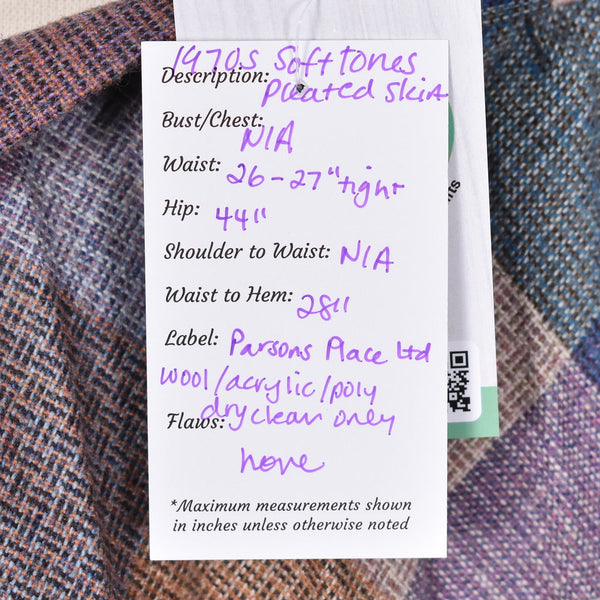 1970s Soft tones
Description: Pleated Skirt
Bust/Chest: N/A
Waist: 26-27" tight
Hip: 44"
Shoulder to Waist: N/A
Waist to Hem: 28"
Label: Parsons Place Ltd
wool/acrylic/poly
dry clean only
Flaws:
none
*Maximum measurements shown
in inches unless otherwise noted